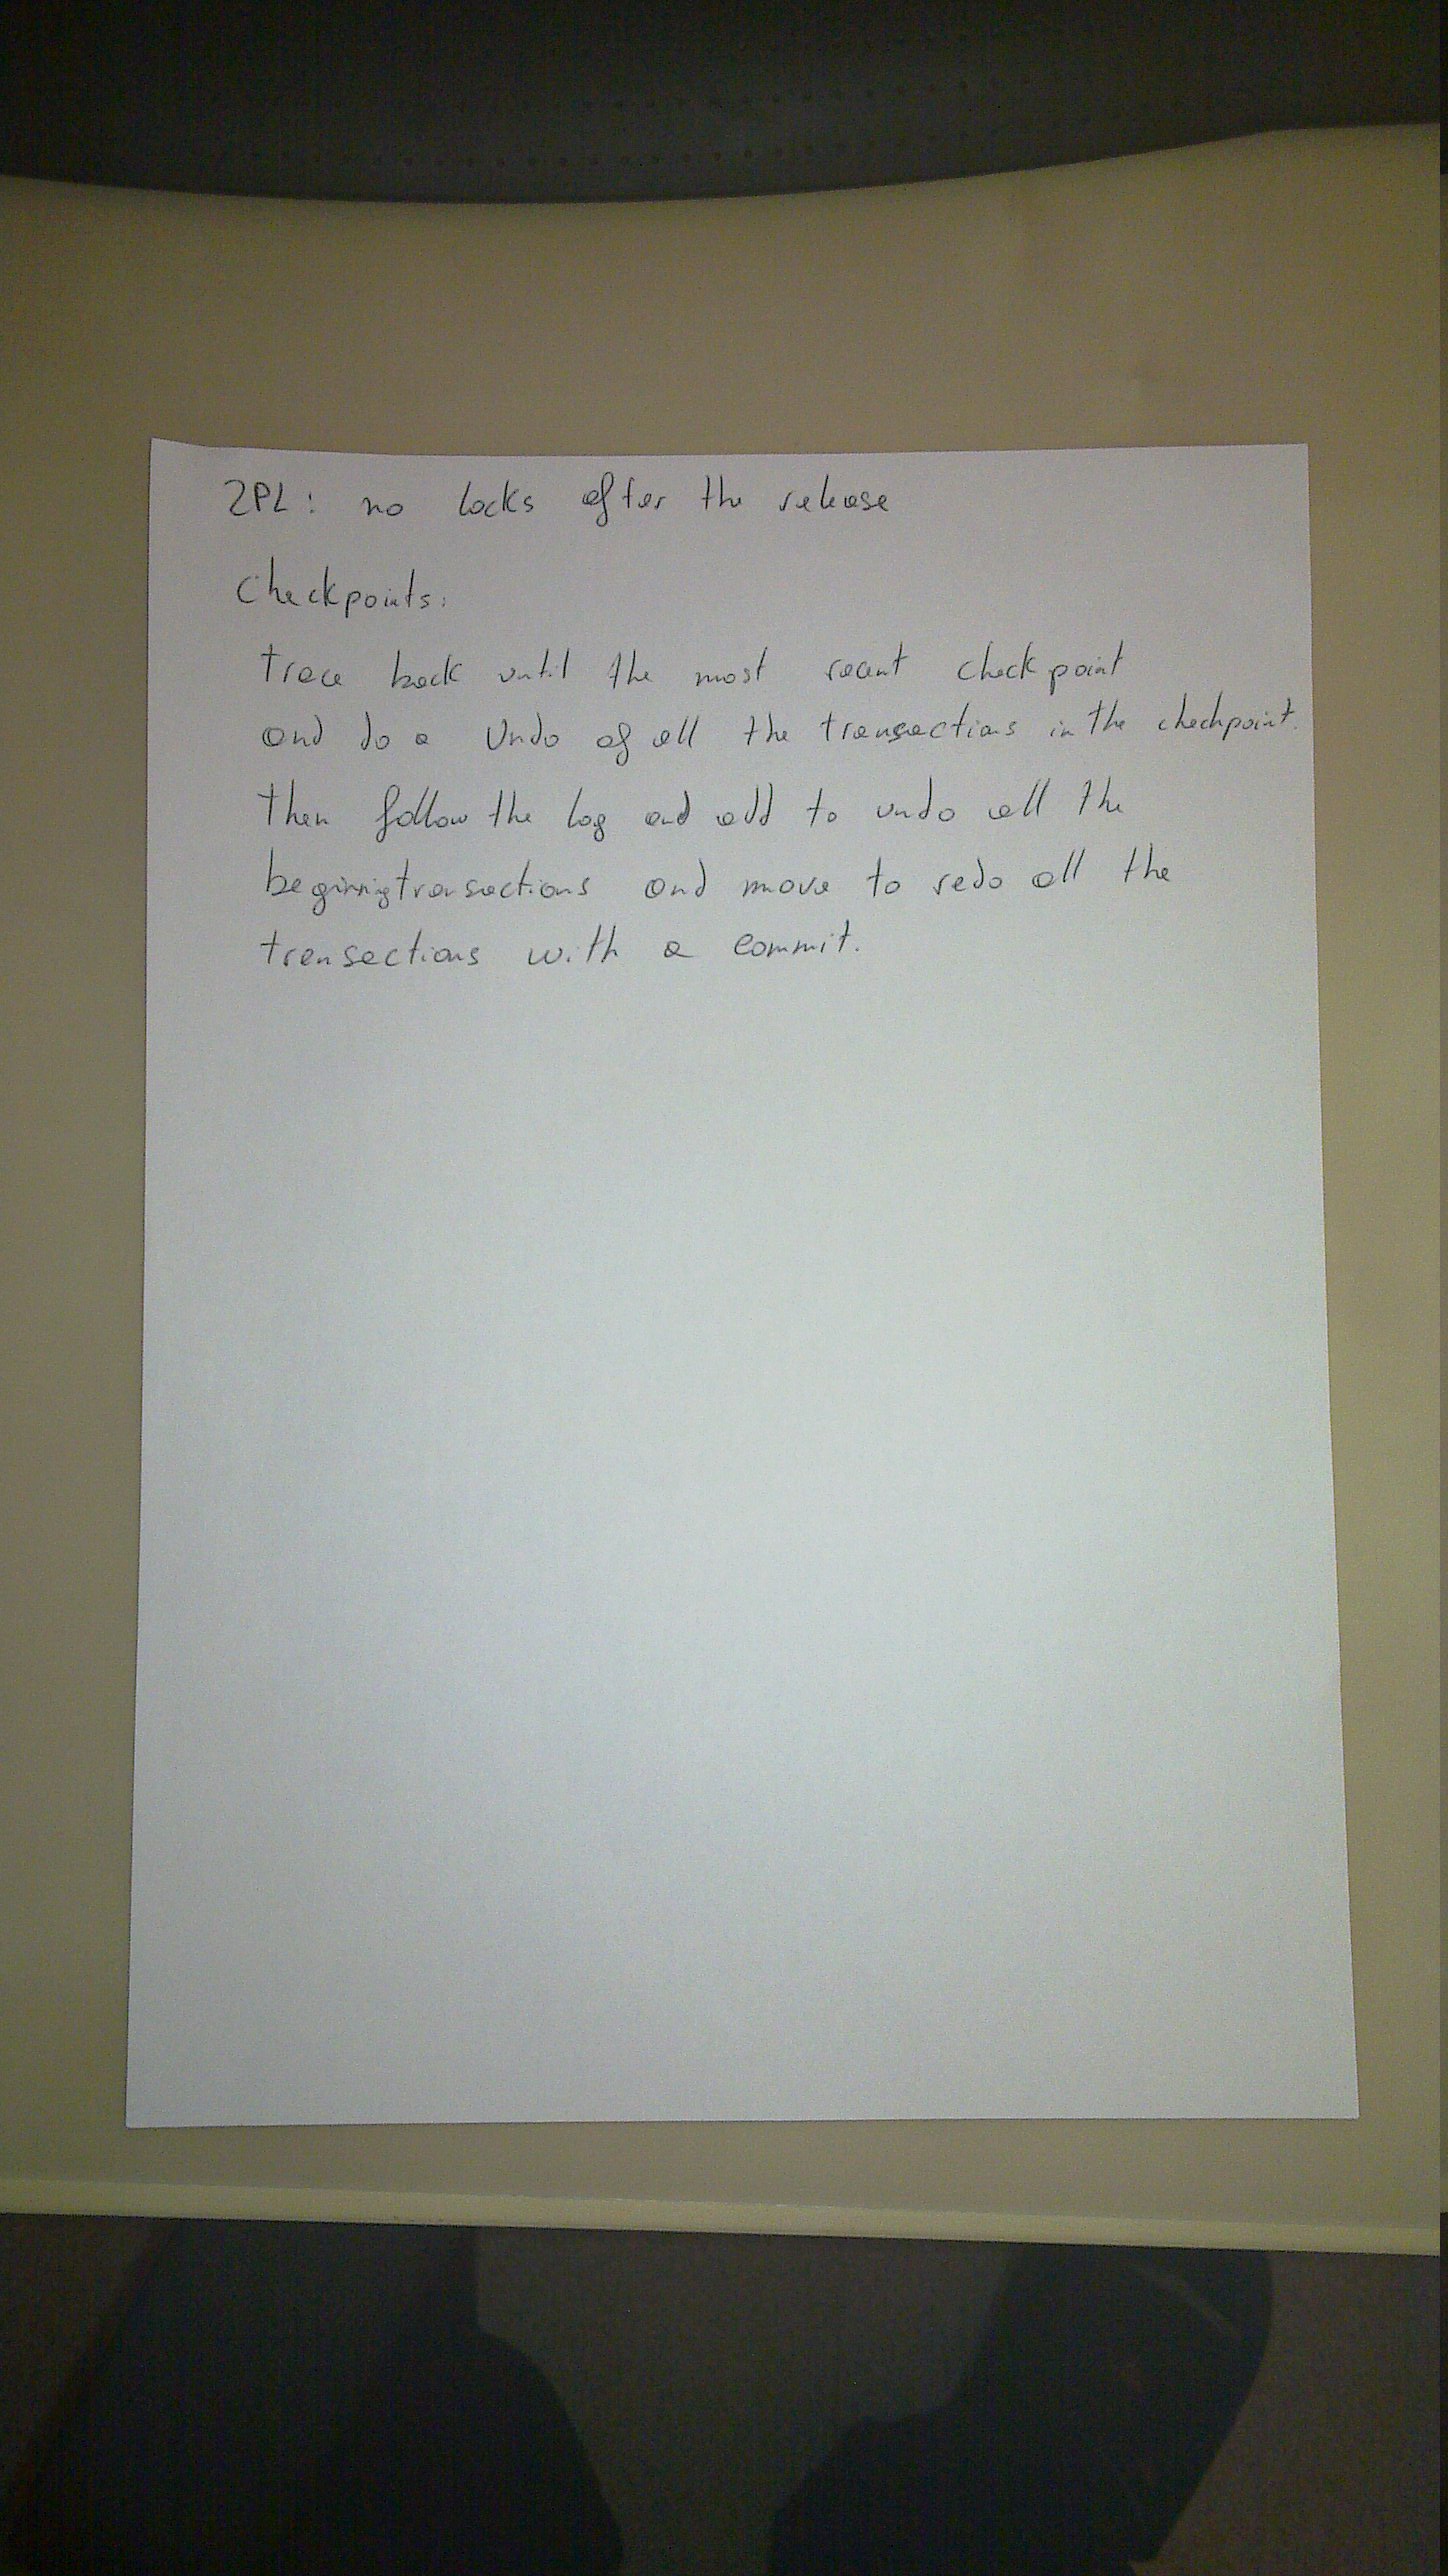 2PL: no locks after the release
Checkpoints:
trace back until the most recent checkpoint
and do a Undo of all the transactions in the checkpoint.
then follow the log and add to undo all the
beginning transactions and move to redo all the
transactions with a commit.